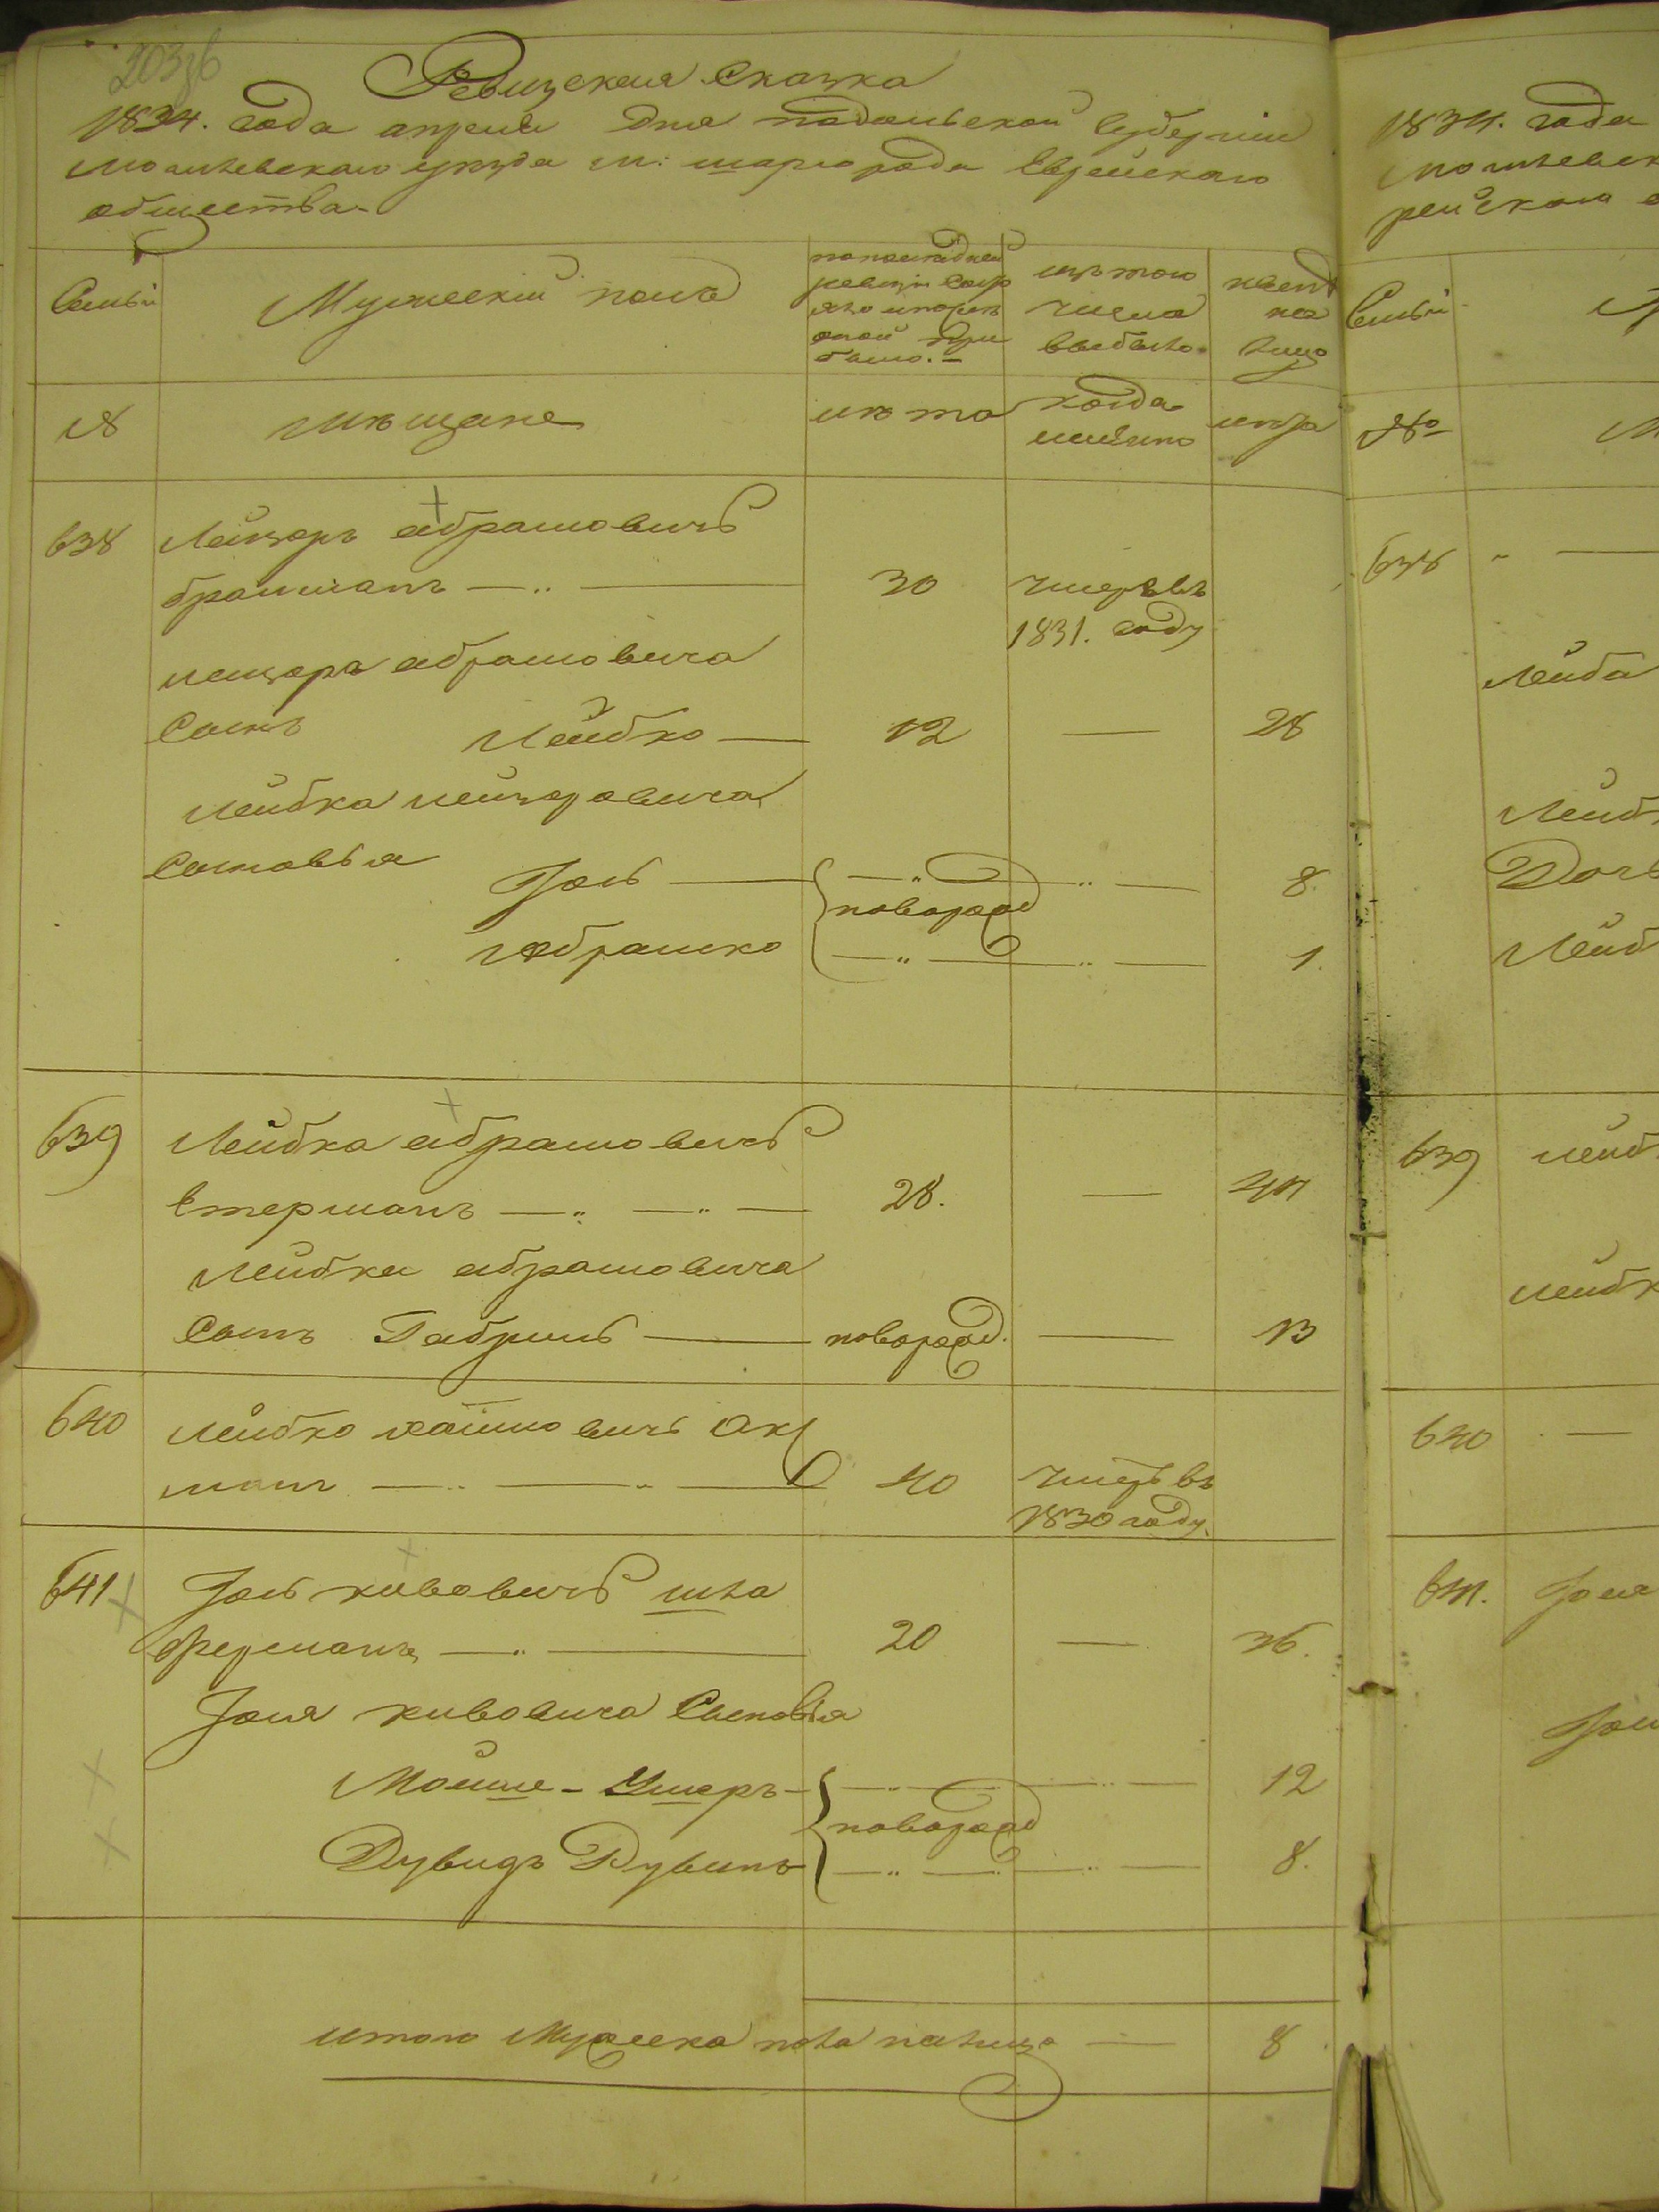 203 зв
Ревизская Сказка
1834. года апреля дня подольской Губернии
могилевского уезда м: шаргорода Еврейскаго
общества.
Семьи
Мужеский полъ
по последней
ревизии состо
яло и после
оной при
было.
изъ того
числа
выбыло
ныне
на
лицо
№
мещане
лета
когда
именно
лета
638
Лейзоръ абрамовичъ
брахманъ
30
умеръ въ
1831. году
лейзора абрамовича
Сынъ Лейбко
12
28
лейбка лейзоровича
Сыновья
Іоль
новорожд
8.
Абрамко
1.
639
Лейбка абрамовичъ
етерманъ
28.
44
Лейбки абрамовича
Сынъ Габриль
новорожд.
13
640
лейбко хаимовичъ
манъ
40
умеръ въ
1830 году.
641
Іоль кивовичъ шна
фрерманъ
20
36.
Іоля кивовича Сыновья
Мойше - Ушеръ
новорожд
12
Дувидъ Рувинъ
8.
итого Мужеска пола налицо
8
1834. года
могилевск
рейскаго о
Семьи
№
638
Лейба
Лейб
Дочь
Лейб
639
лейб
лейбк
640
641.
Іоля
Іоля